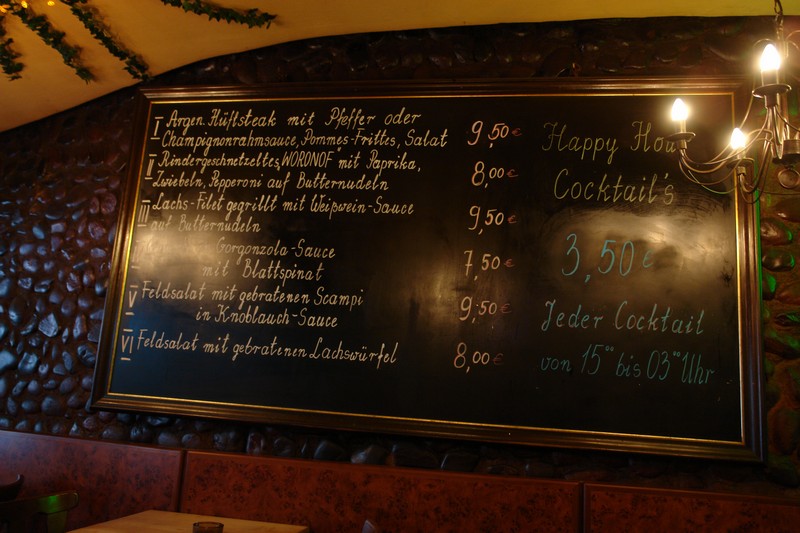 I Argen. Hüftsteak mit Pfeffer oder
Champignonrahmsauce, Pommes-Frittes, Salat 9,50€
II Rindergeschnetzeltes, WORONOF mit Paprika,
Zwiebeln, Pepperoni auf Butternudeln 8,00€
III Lachs-Filet gegrillt mit Weißwein-Sauce
auf Butternudeln 9,50€
Gorgonzola-Sauce
mit Blattspinat 7,50€
V Feldsalat mit gebratenen Scampi
in Knoblauch-Sauce 9,50€
VI Feldsalat mit gebratenen Lachswürfel 8,00€
Happy Hou
Cocktail's
3,50€
Jeder Cocktail
von 15°° bis 03°° Uhr